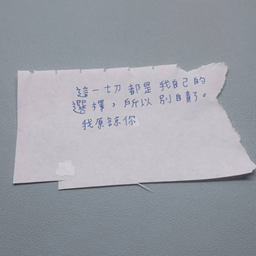 這一切都是我自己的
選擇，所以別自責了。
我原諒你